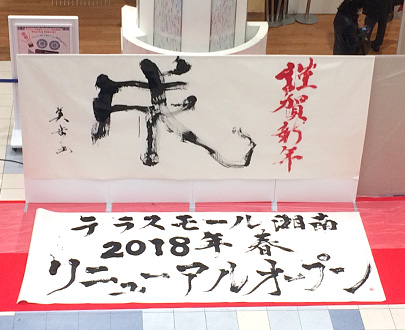 謹賀新年
戌
テラスモール湘南
2018年春
リニューアルオープン